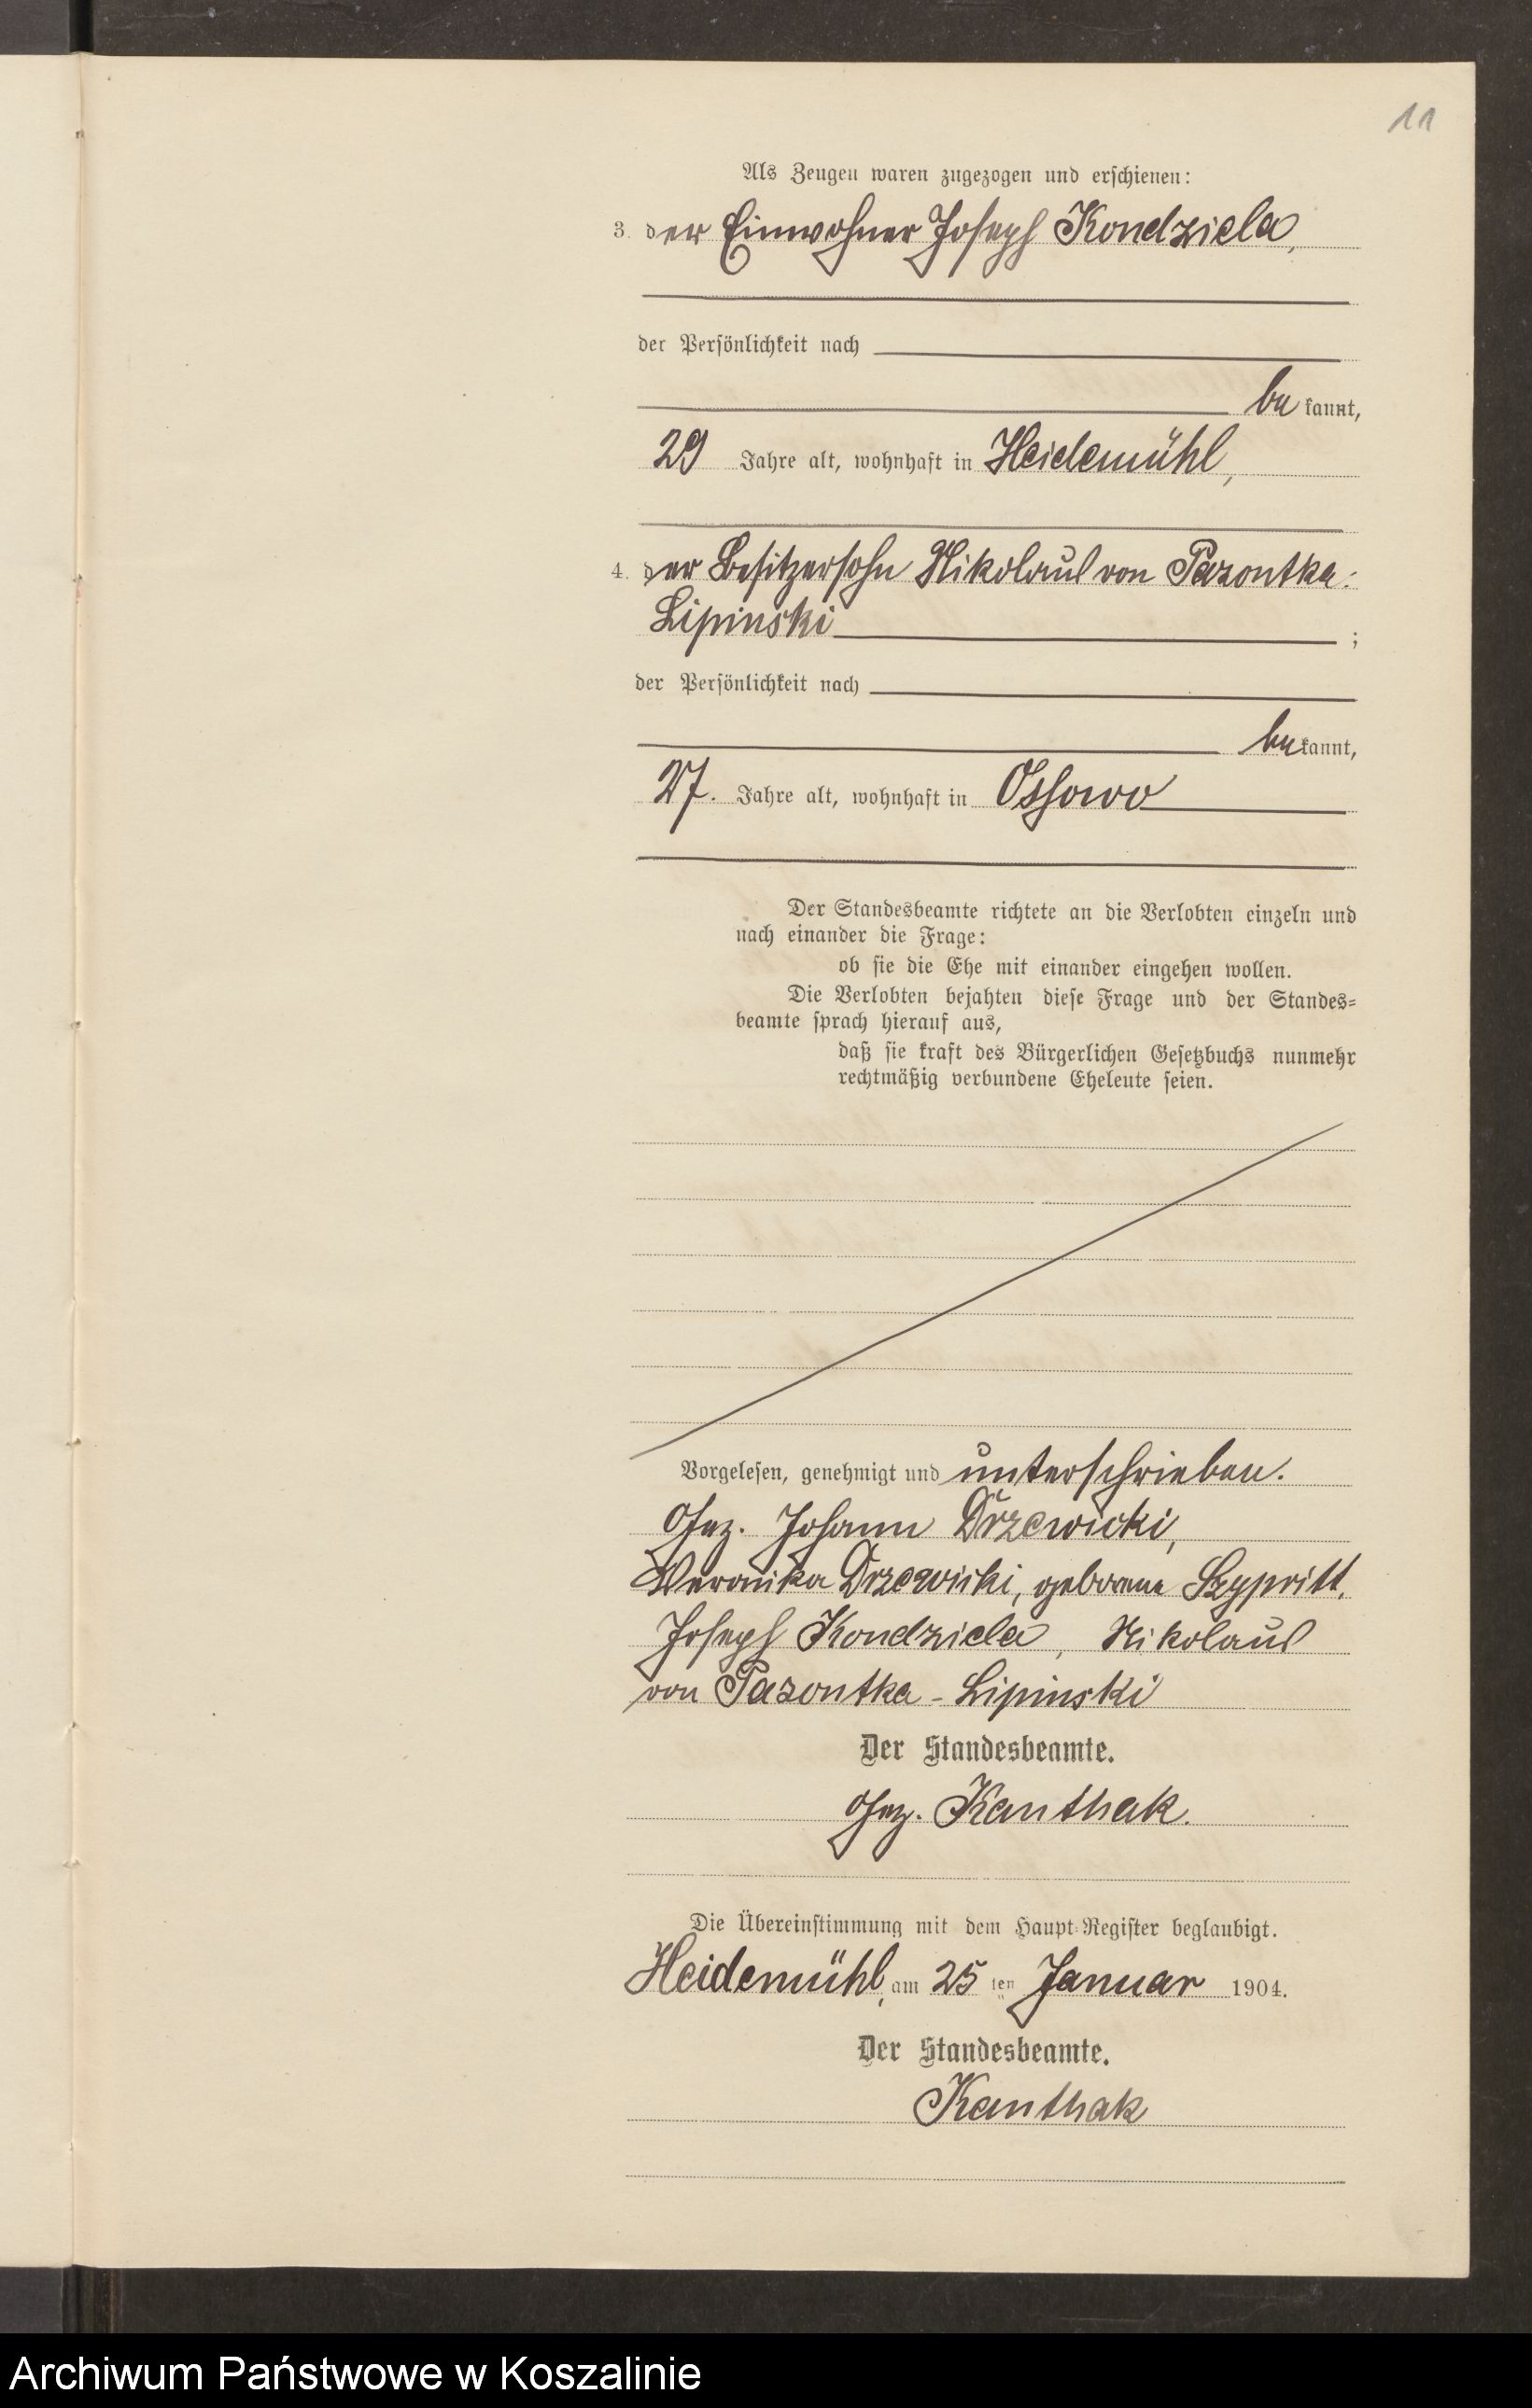 11
Als Zeugen waren zugezogen und erschienen:
3. der Einwohner Joseph Kondziela,
der Persönlichkeit nach
be kannt,
29 Jahre alt, wohnhaft in Heidemühl,
4. der Besitzersohn Nikolaus von Pazontka-
Lipinski ;
der Persönlichkeit nach
be kannt,
27. Jahre alt, wohnhaft in Ossowo
Der Standesbeamte richtete an die Verlobten einzeln und
nach einander die Frage:
ob sie die Ehe mit einander eingehen wollen.
Die Verlobten bejahten diese Frage und der Standes=
beamte sprach hierauf aus,
daß sie kraft des Bürgerlichen Gesetzbuchs nunmehr
rechtmäßig verbundene Eheleute seien.
Vorgelesen, genehmigt und unterschrieben.
Gez. Johann Drzewicki,
Veronika Drzewicki, geborene Szypritt,
Joseph Kondziela, Nikolaus
von Pazontka-Lipinski
Der Standesbeamte.
Gez. Kanthak.
Die Übereinstimmung mit dem Haupt-Register beglaubigt.
Heidemühl, am 25 ten Januar 1904.
Der Standesbeamte.
Kanthak
Archiwum Państwowe w Koszalinie